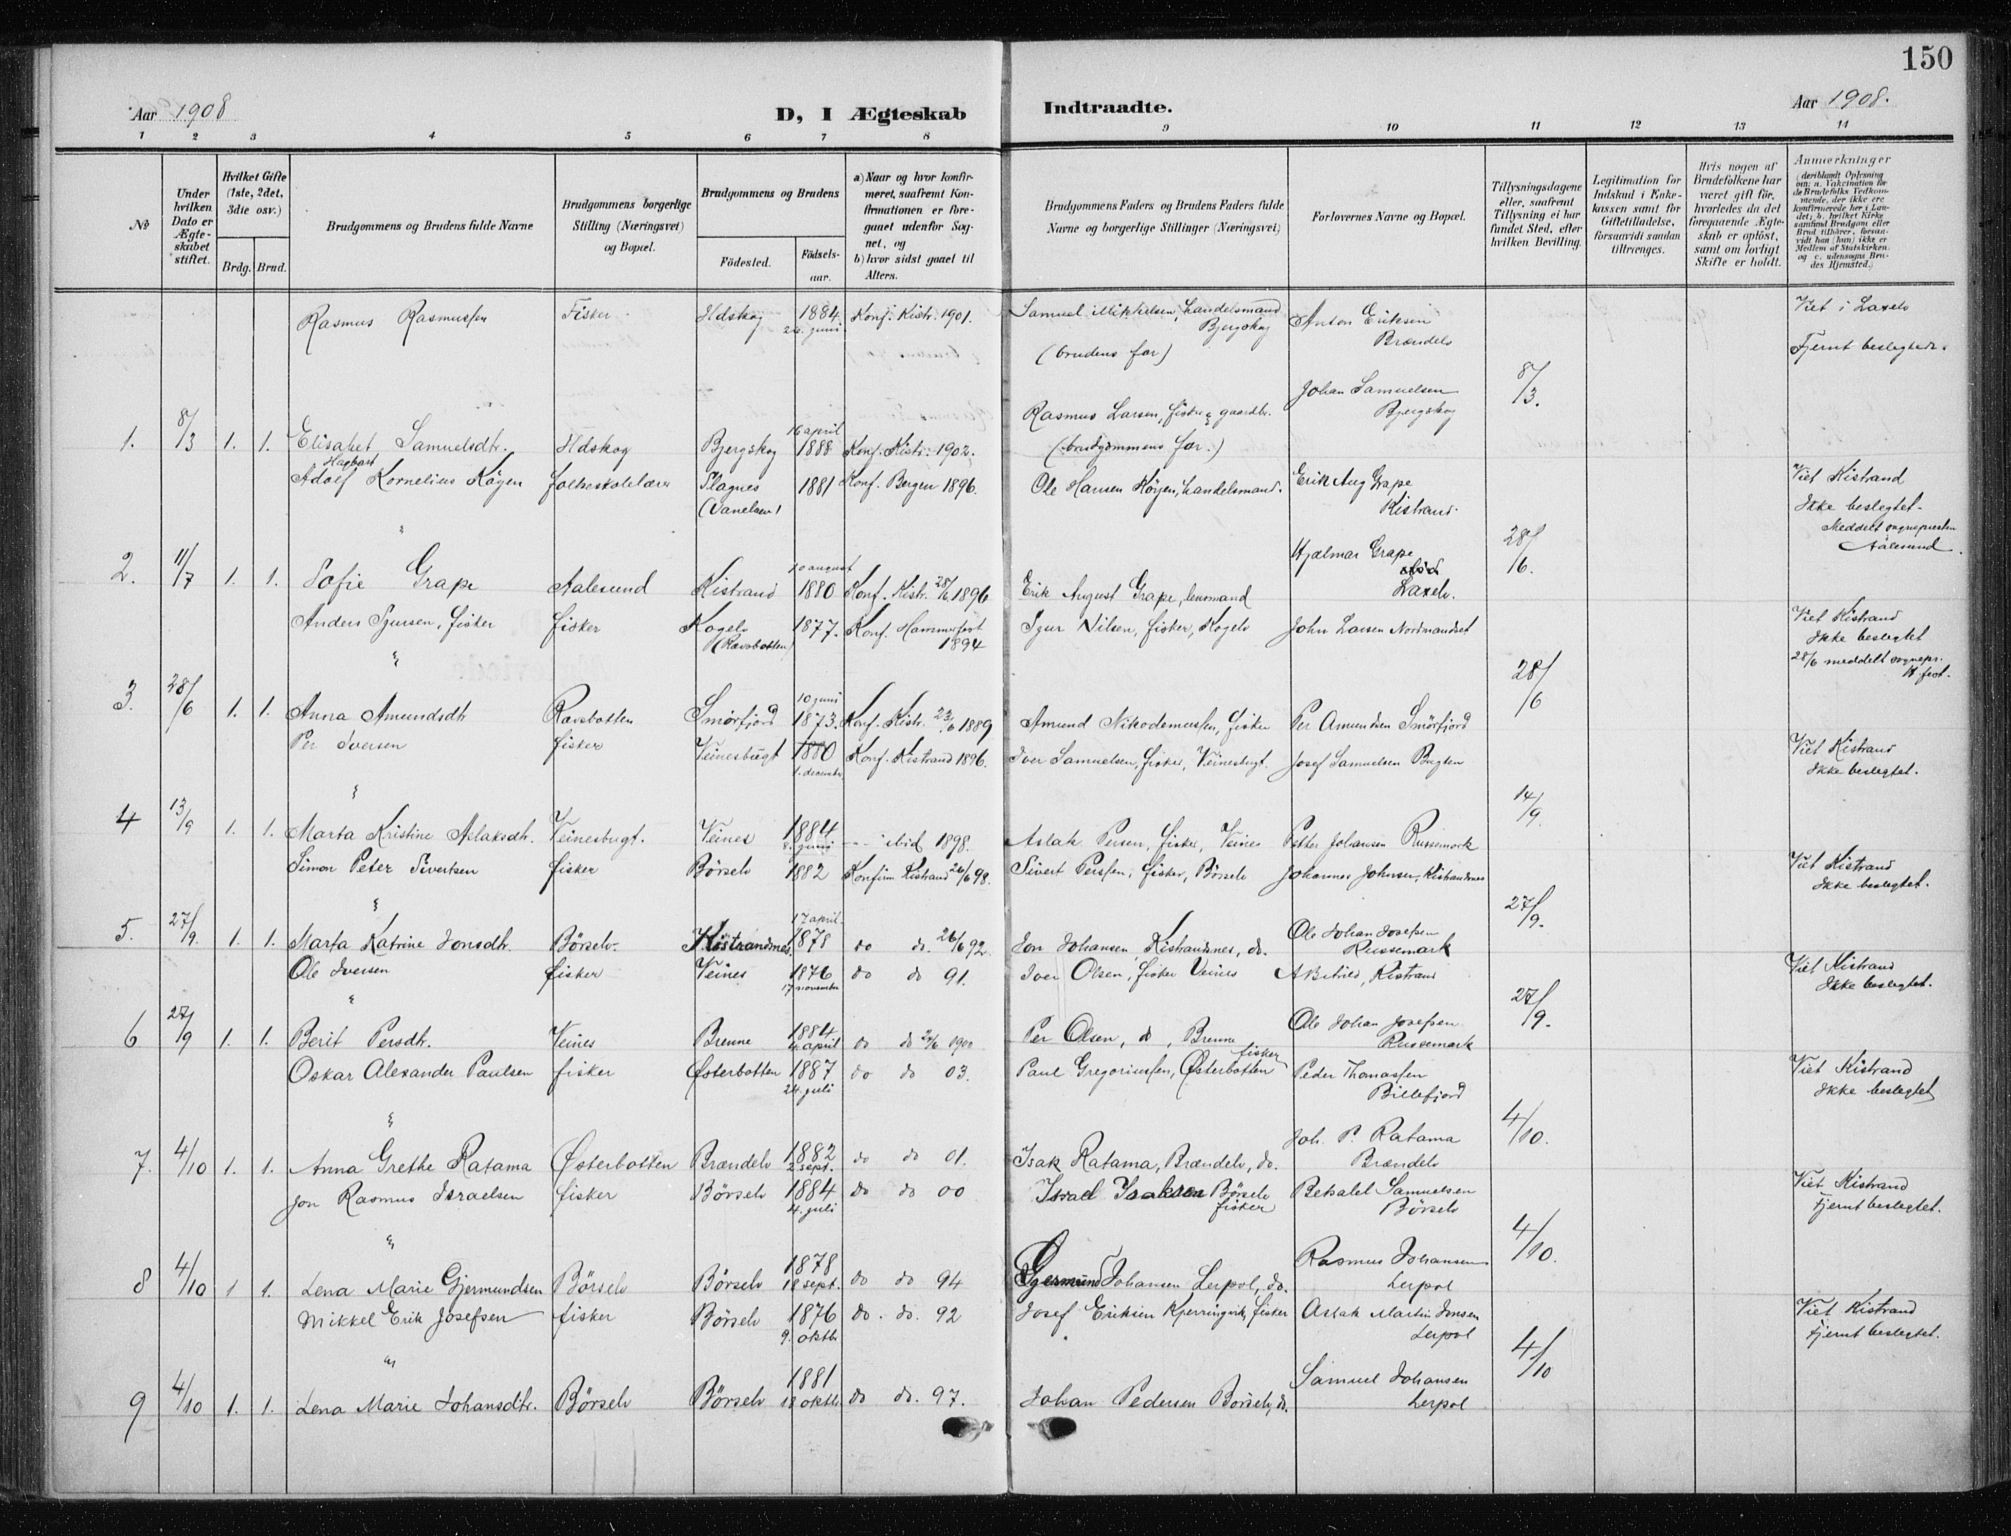 150
Aar 1908
D, I Ægteskab Indtraadte.
Aar 1908.
1 2 3 4 5 6 7 8 9 10 11 12 13 14
No
Under hvilken Dato er Ægteskabet stiftet.
Hvilket Gifte (1ste, 2det, 3die osv.)
Brdg. Brud.
Brudgommens og Brudens fulde Navne
Brudgommens borgerlige Stilling (Næringsvei) og Bopæl.
Brudgommens og Brudens
Fødested.
Fødselsaar.
a) Naar og hvor konfirmeret, saafremt Konfirmationen er foregaaet udenfor Sognet, og
b) hvor sidst gaaet til Alters.
Brudgommens Faders og Brudens Faders fulde Navne og borgerlige Stillinger (Næringsvei)
Forlovernes Navne og Bopæl.
Tillysningsdagene eller, saafremt Tillysning ei har fundet Sted, efter hvilken Bevilling.
Legitimation for Indskud i Enkekassen samt for Giftetilladelse, forsaavidt saadan tiltrænges.
Hvis nogen af Brudefolkene har været gift før, hvorledes da det foregaaende Ægteskab er opløst, samt om lovligt Skifte er holdt.
Anmærkninger (deriblandt Oplysning om: a. Vakcination for de Brudefolks Vedkommende, der ikke ere konfirmerede her i Landet; b. hvilket Kirkesamfund Brudgom eller Brud tilhører, forsaavidt han (hun) ikke er Medlem af Statskirken, og c. udensogns Brudes Hjemsted.)
Rasmus Rasmussen Fisker Hdskog 1884 24. juni Konf. Kistr. 1901. Samuel Mikkelsen, handelsmand Bjergskog (brudens far) Anton Eriksen Brændelv Viet i Laxelv
Fjernt beslegtede.
Rasmus Larsen, fisker & gaardbr. (brudgommens far.) Johan Samuelsen Bjergskog 8/3.
1. 8/3 1. 1. Elisabet Samuelsdtr. Hdskog Bjergskog 16 april 1888 Konf. Kistr. 1902.
Adolf Hagbart Kornelius Köyen folkeskolelærer Flagnes (Vanelven) 1881 Konf. Bergen 1896. Ole Hansen Köyen, handelsmand. Erik Aug Grape Kistrand. Viet Kistrand
Ikke beslegtet.
Meddelt sognepresten Aalesund.
2. 11/7 1. 1. Sofie Grape Aalesund Kistrand 10 august 1880 Konf. Kistr. 28/6 1896 Erik August Grape, lensmand Hjalmar Grape Laxelv. 28/6.
Anders Sjursen, fisker fisker Kogelv (Ravsbotten) 1877. Konf. Hammerfest 1894 Sjur Nilsen, fisker, Kogelv John Larsen Nordmandset Viet Kistrand
Ikke beslegtet
28/6 meddelt sognepr. H.fest.
3. 28/6 1. 1. Anna Amundsdtr Ravsbotten Smörfjord 10 juni 1873. Konf. Kistr. 23/6 1889 Amund Nikodemussen, fisker Per Amundsen Smörfjord 28/6
Per Iversen fisker Veinesbugt 1880 1. december Konf. Kistrand 1896. Iver Samuelsen, fisker, Veinesbugt. Josef Samuelsen Bugten Viet Kistrand
Ikke beslegtet.
4 13/9 1. 1. Marta Kristine Aslaksdtr. Veinesbugt. Veines 1884 8. juni - - ibid 1898. Aslak Persen, fisker, Veines Petter Johansen Russemark 14/9.
Simon Peter Sivertsen fisker Börselv 1882 Konfirm Kistrand 26/6 98. Sivert Perssen, fisker, Börselv Johannes Johnsen, Kistrandnes Viet Kistrand
Ikke beslegtet.
5. 27/9. 1. 1. Marta Katrine Jonsdtr. Börselv. Kistrandnes 17 april 1878 do do. 26/6 92. Jon Johansen Kistrandnes, do. Ole Johan Josefsen Russemark 27/9.
Ole Iversen fisker Veines 1876 17 november do do 91. Iver Olsen, fisker Veines A Betvild, Kistrand Viet Kistrand
Ikke beslegtet.
6 27/9 1. 1. Berit Persdtr. Veines Brenne 1884 4. april do do 24/6 1900 Per Olsen, do, Brenne Ole Johan Josefsen Russemark 27/9.
Oskar Alexander Paulsen fisker Østerbotten 1887 24. juli do do 03. Paul Gregoriussen, Østerbotten fisker Peder Thomassen Billefjord Viet Kistrand
Ikke beslegtet
7. 4/10 1. 1. Anna Grethe Ratama Østerbotten Brændelv 1882 2 sept. do do 01. Isak Ratama, Brændelv, do. Joh. P. Ratama Brændelv 4/10.
Jon Rasmus Israelsen fisker Börselv 1884 4. juli do do 00 Israel Isaksen Börselv fisker Betsalel Samuelsen Börselv Viet Kistrand
Fjernt beslegtet.
8 4/10 1 1. Lena Marie Gjermundsen Börselv Börselv 1878 18 sept. do do 94 Gjermund Johansen Lerpol, do. Rasmus Johansen Lerpol 4/10.
Mikkel Erik Josefsen fisker Börselv 1876 9. oktbr do. do. 92 Josef Eriksen Kjerringvik, fisker Aslak Martin Jonsen Lerpol Viet Kistrand
Fjernt beslegtet.
9 4/10 1. 1. Lena Marie Johansdtr. Börselv Börselv 1881 18 oktbr do do. 97. Johan Pedersen Börselv, do. Samuel Johansen Lerpol 4/10